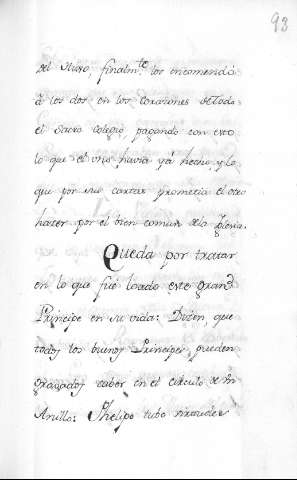 93
del otro, finalm.te los encomendó
à los dos en los corazones de todo
el Sacro Colegio, pagando con esto
lo que el uno havia yà hecho, y lo
que por sus cartas prometia el otro
hacer por el bien comun de la Iglesia.
Queda por tratar
en lo que fué loado este gran
Principe en su vida: Dicen, que
todos los buenos Principes, pueden
gravados caber en el circulo de un
Anillo: Phelipe tubo virtudes